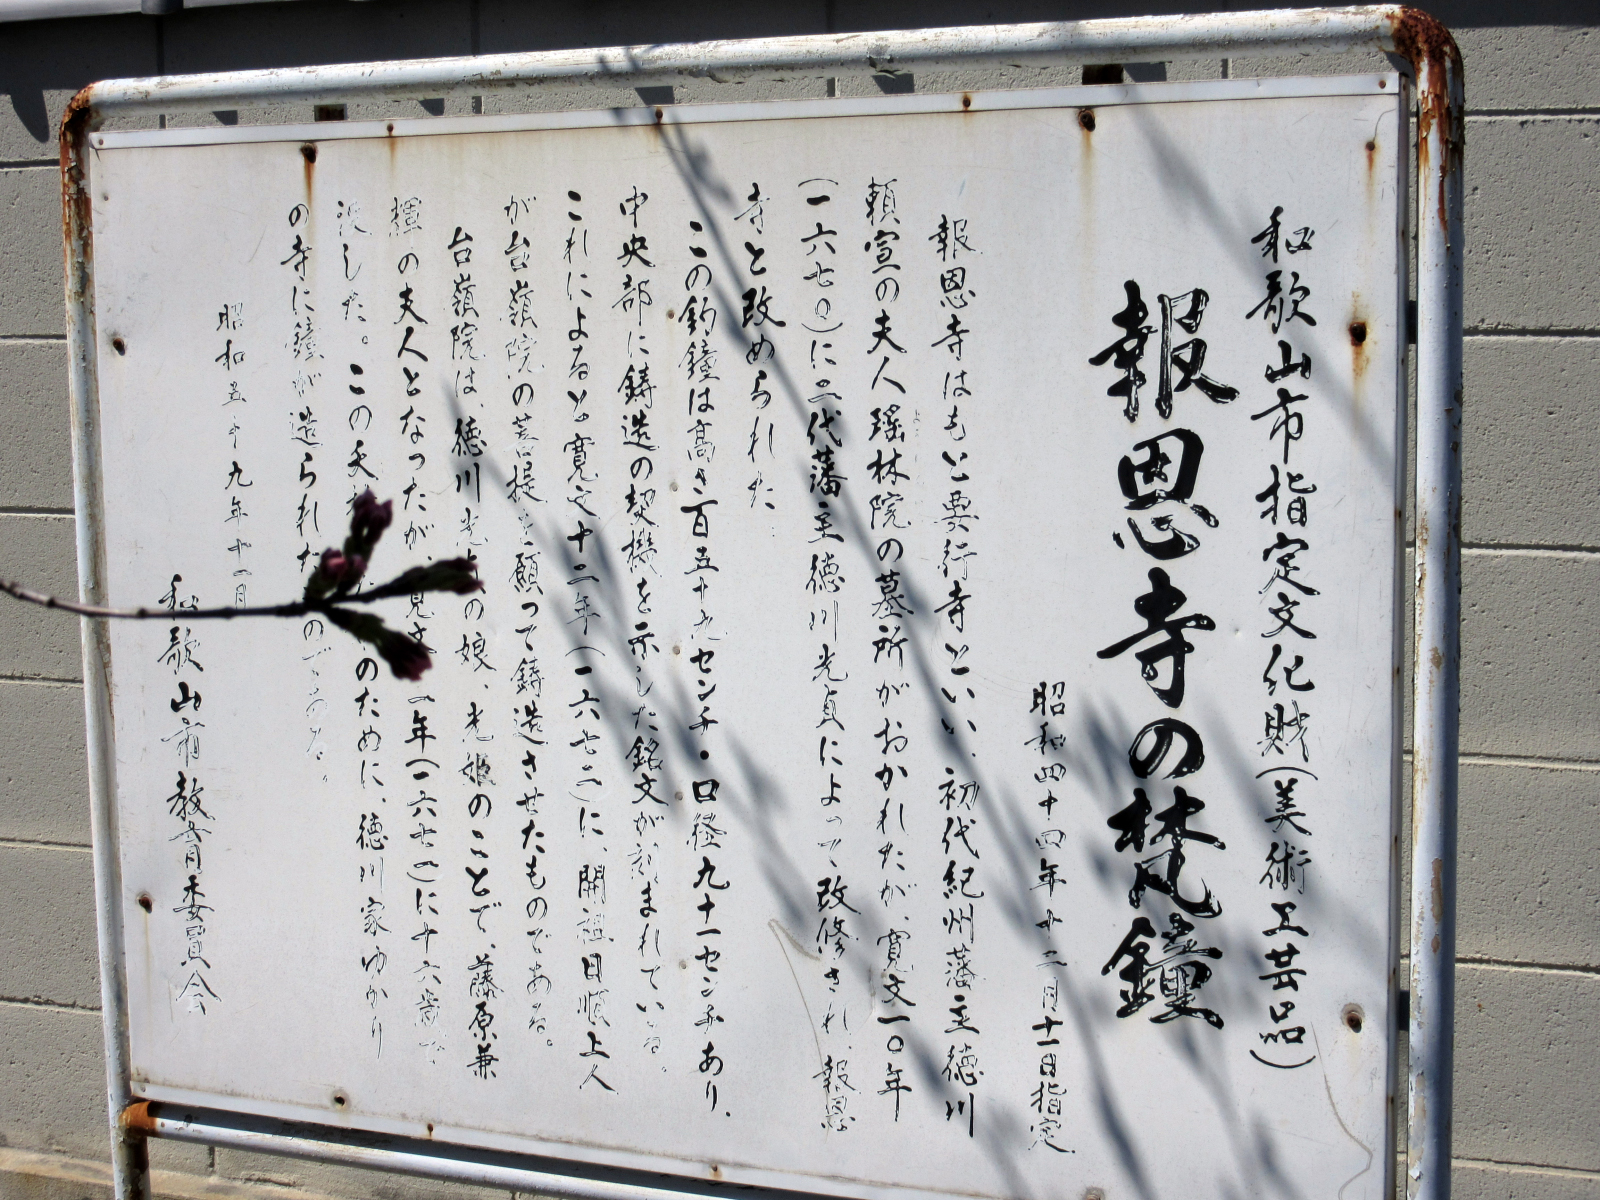 和歌山市指定文化財(美術工芸品)
報恩寺の梵鐘
昭和四十四年十二月十一日指定
報恩寺はもと要行寺といい、初代紀州藩主徳川
頼宣の夫人瑤林院の墓所がおかれたが、寛文一〇年
(一六七〇)に二代藩主徳川光貞によって改修され、報恩
寺と改められた
この釣鐘は高さ百五十九センチ・口径九十一センチあり、
中央部に鋳造の契機を示した銘文が刻まれている。
これによると寛文十二年(一六七二)に、開祖日順上人
が台嶺院の菩提を願って鋳造させたものである。
台嶺院は、徳川光の娘、光姫のことで、藤原兼
輝の夫人となったが、年(一六七一)に十六歳で
没した。この夭のために、徳川家ゆかり
の寺に鐘が造られたのである。
昭和五十九年十一月
和歌山市教育委員会